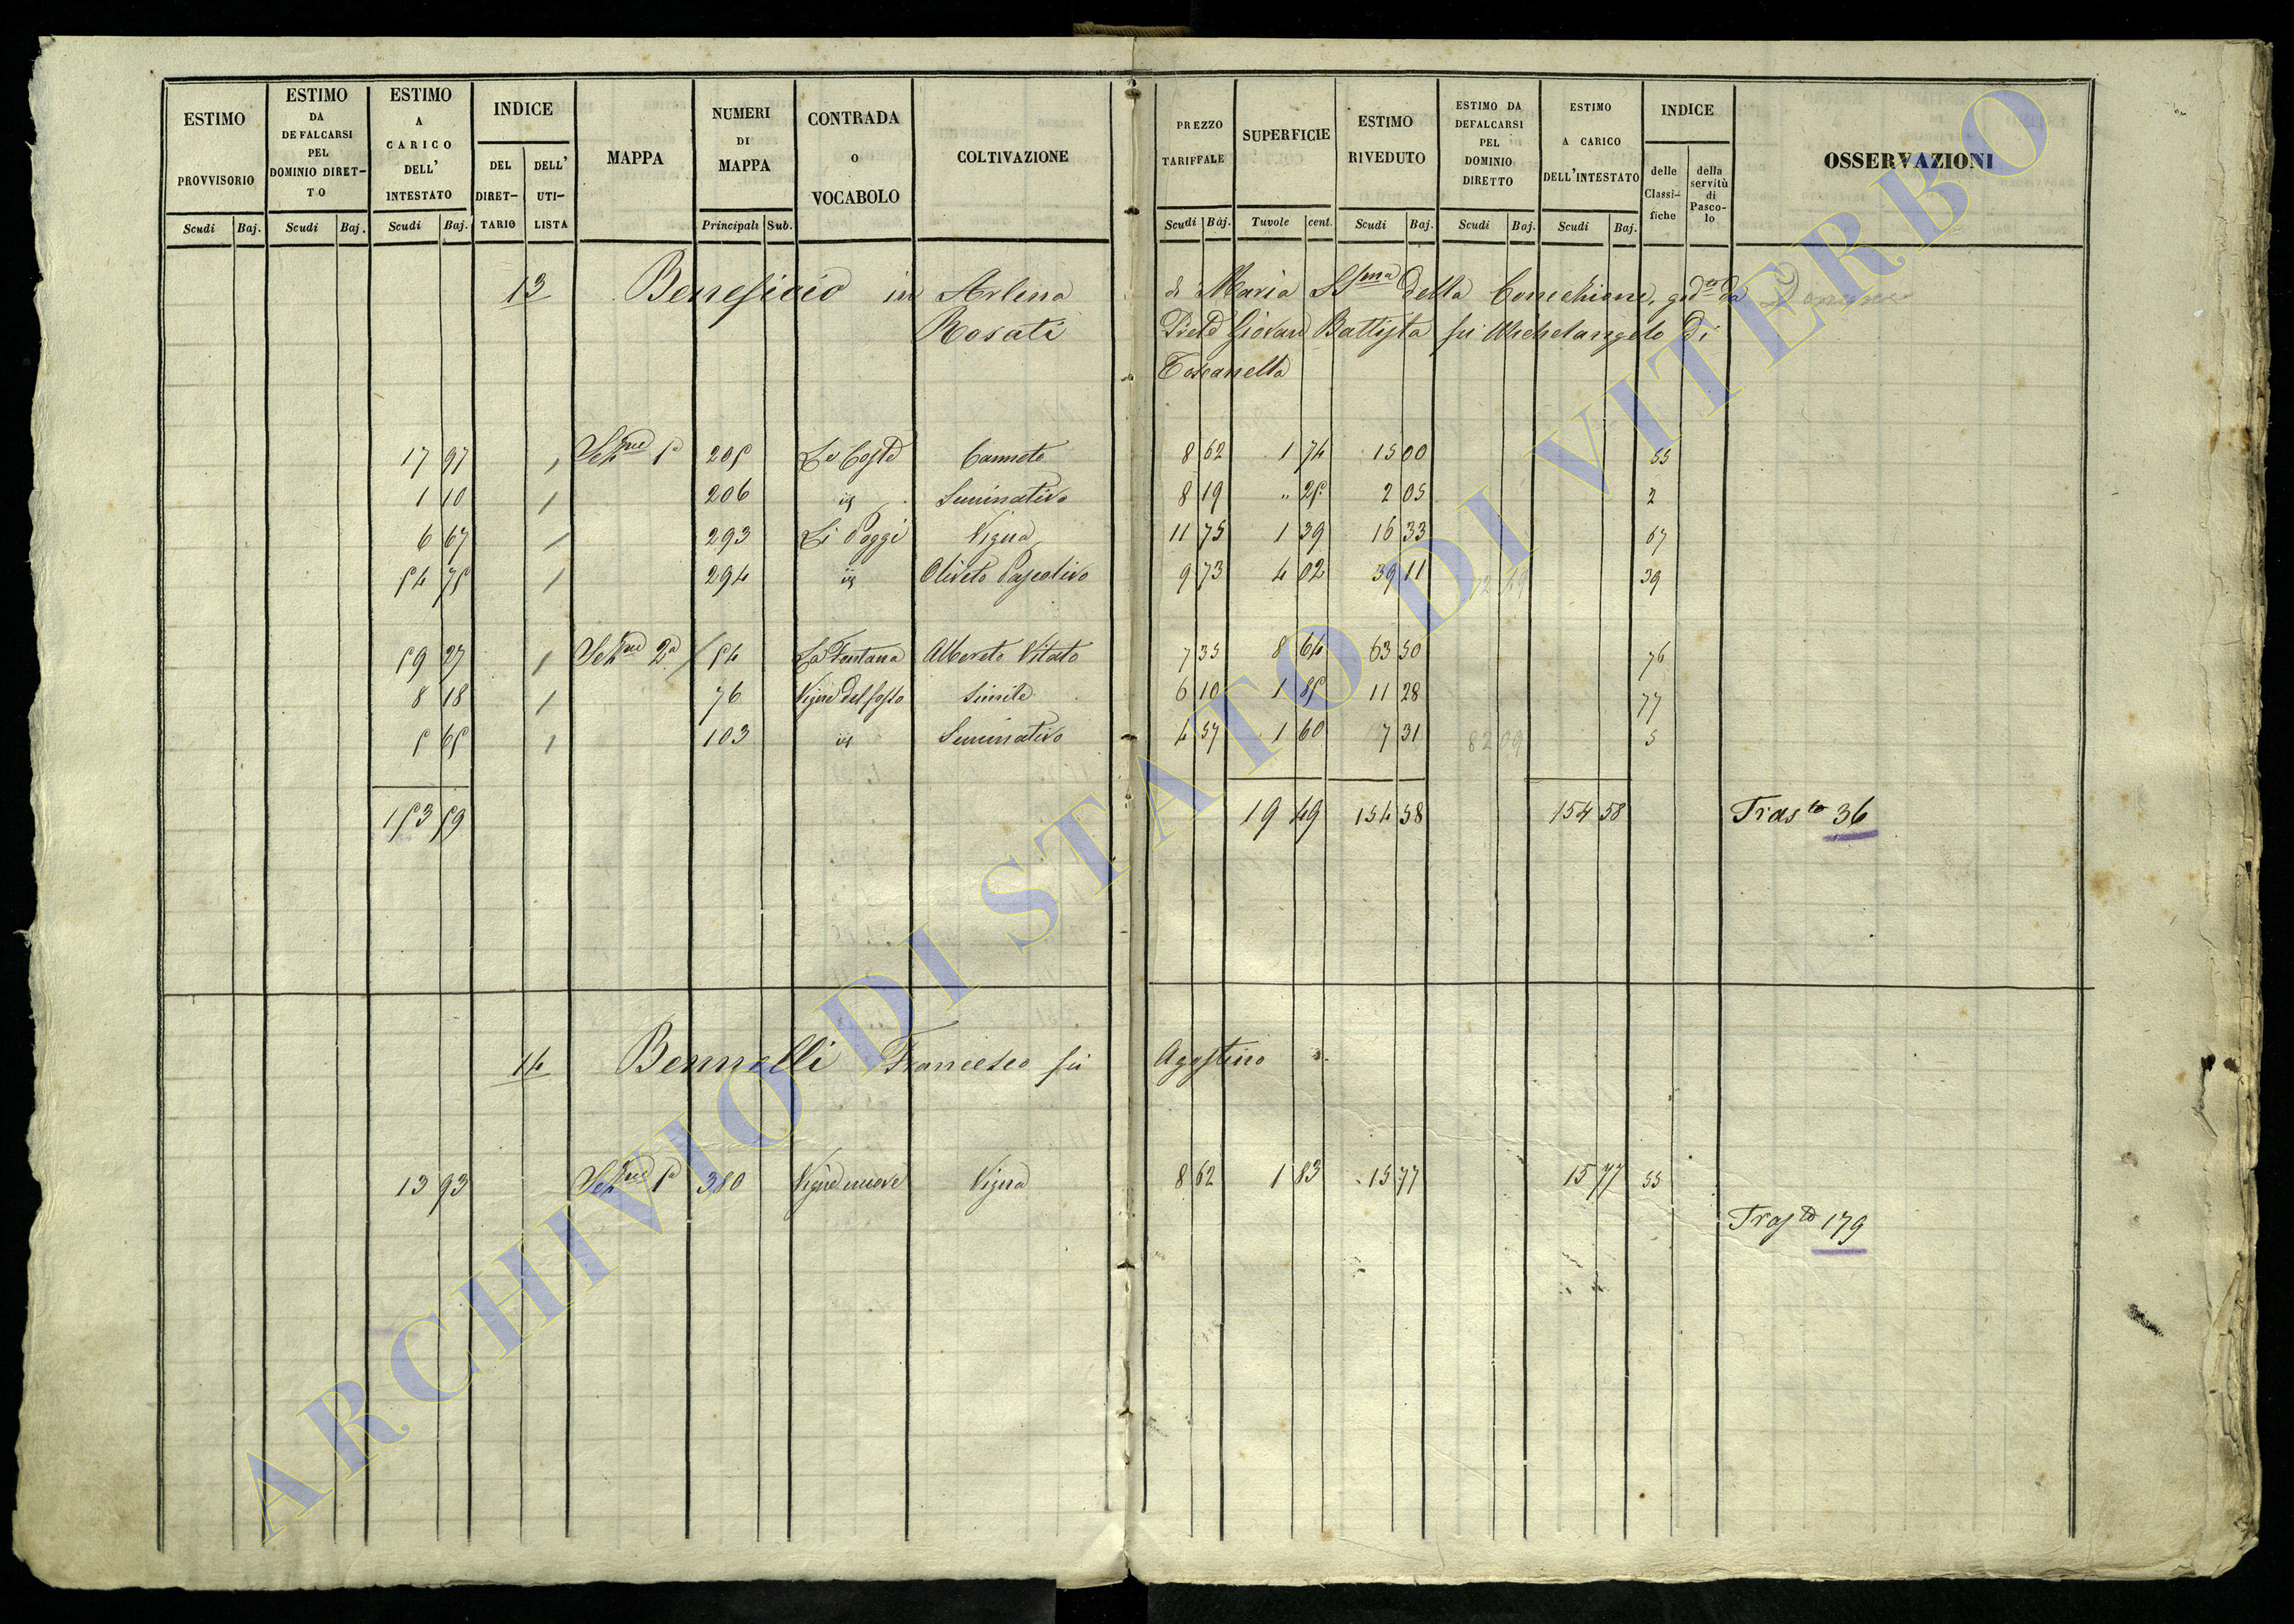 ESTIMO PROVVISORIO
ESTIMO DA DEFALCARSI PEL DOMINIO DIRETTO
ESTIMO A CARICO DELL' INTESTATO
INDICE
DEL DIRETTARIO
DELL' UTILISTA
MAPPA
NUMERI DI MAPPA
CONTRADA O VOCABOLO
COLTIVAZIONE
PREZZO TARIFFALE
SUPERFICIE
ESTIMO RIVEDUTO
ESTIMO DA DEFALCARSI PEL DOMINIO DIRETTO
ESTIMO A CARICO DELL'INTESTATO
INDICE
delle Classifiche
della servitù di Pascolo
OSSERVAZIONI
Scudi Baj. Scudi Baj. Scudi Baj. Principali Sub. Scudi Baj. Tavole cent. Scudi Baj. Scudi Baj. Scudi Baj.
13 Beneficio in Arlena di Maria SSma della Concezione, god.to da
Rosati Prete Giovan Battista fu Michelangelo di
Toscanella
17 97 / Sezne 1a 205 Le Coste Canneto 8 62 1 74 15 00 55
1 10 / 206 id Seminativo 8 19 " 25 2 05 2
6 67 / 293 Li Poggi Vigna 11 75 1 39 16 33 67
54 75 / 294 id Oliveto Pascolivo 9 73 4 02 39 11 72 49 39
59 27 / Sezne 2a 54 La Fontana Albereto Vitato 7 35 8 64 63 50 76
8 18 / 76 Vigne del fosso Simile 6 10 1 85 11 28 77
5 65 / 103 id Seminativo 4 57 1 60 7 31 82 09 5
153 59 19 49 154 58 154 58 Trasto 36
14 Bennelli Francesco fu Agostino
13 93 Sezne 1a 380 Vigne nuove Vigna 8 62 1 83 15 77 15 77 55
Trasto 179
ARCHIVIO DI STATO DI VITERBO